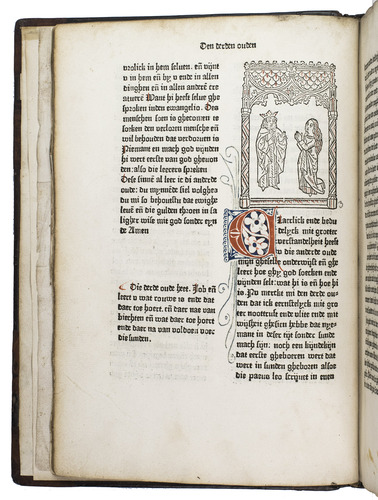 Den derden ouden
vrolick in hem seluen. eñ vijnt
v in hem eñ by v ende in allen
dinghen eñ in allen anderē cre
aturē Want hi heeft selue ghe
sproken inden ewangelio. Des
menschen soen is ghecomen te
soeken den verloren mensche eñ
wil behouden dat verdoruen is
Niemant en mach god vijnden
hi wert eerst van god gheuon
den. also die leeres spreken
Dese sinnē al leert ic di anderde
oude. du mynnēde siel volghes
du mi so behoustu dat ewighe
leuen eñ die gulden throen in sa
ligher wise mit god sonder eyn
de Amen
Die derde oude heet Job. eñ
leert v wat rouwe is ende wat
daer toe hoert. eñ daer na van
biechten eñ wat daer toe hoert
ende daer na van voldoen voer
die sunden.
Claerlick ende hedu
delyck mit groter
verstandelheit heeft
v die anderde oude
mijn ghesselle onderwijst eñ ghe
leert hoe ghy god soeken ende
vijnden selt. wat hi is eñ hoe hi
is. Nv merckt mi den derden ou
den dat ick eernstelyck mit gro
ter
ende mit
wijsheit ghesien hebbe dat nye
mant in deser tijt sonder sunde
mach sijn: noch een kijndekijn
dat eerst gheboren wert dat
wert in sunden gheboren alsoe
die paeus leo scrijuet in enen